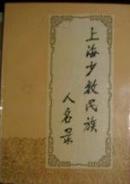 上海少数民族
人名录